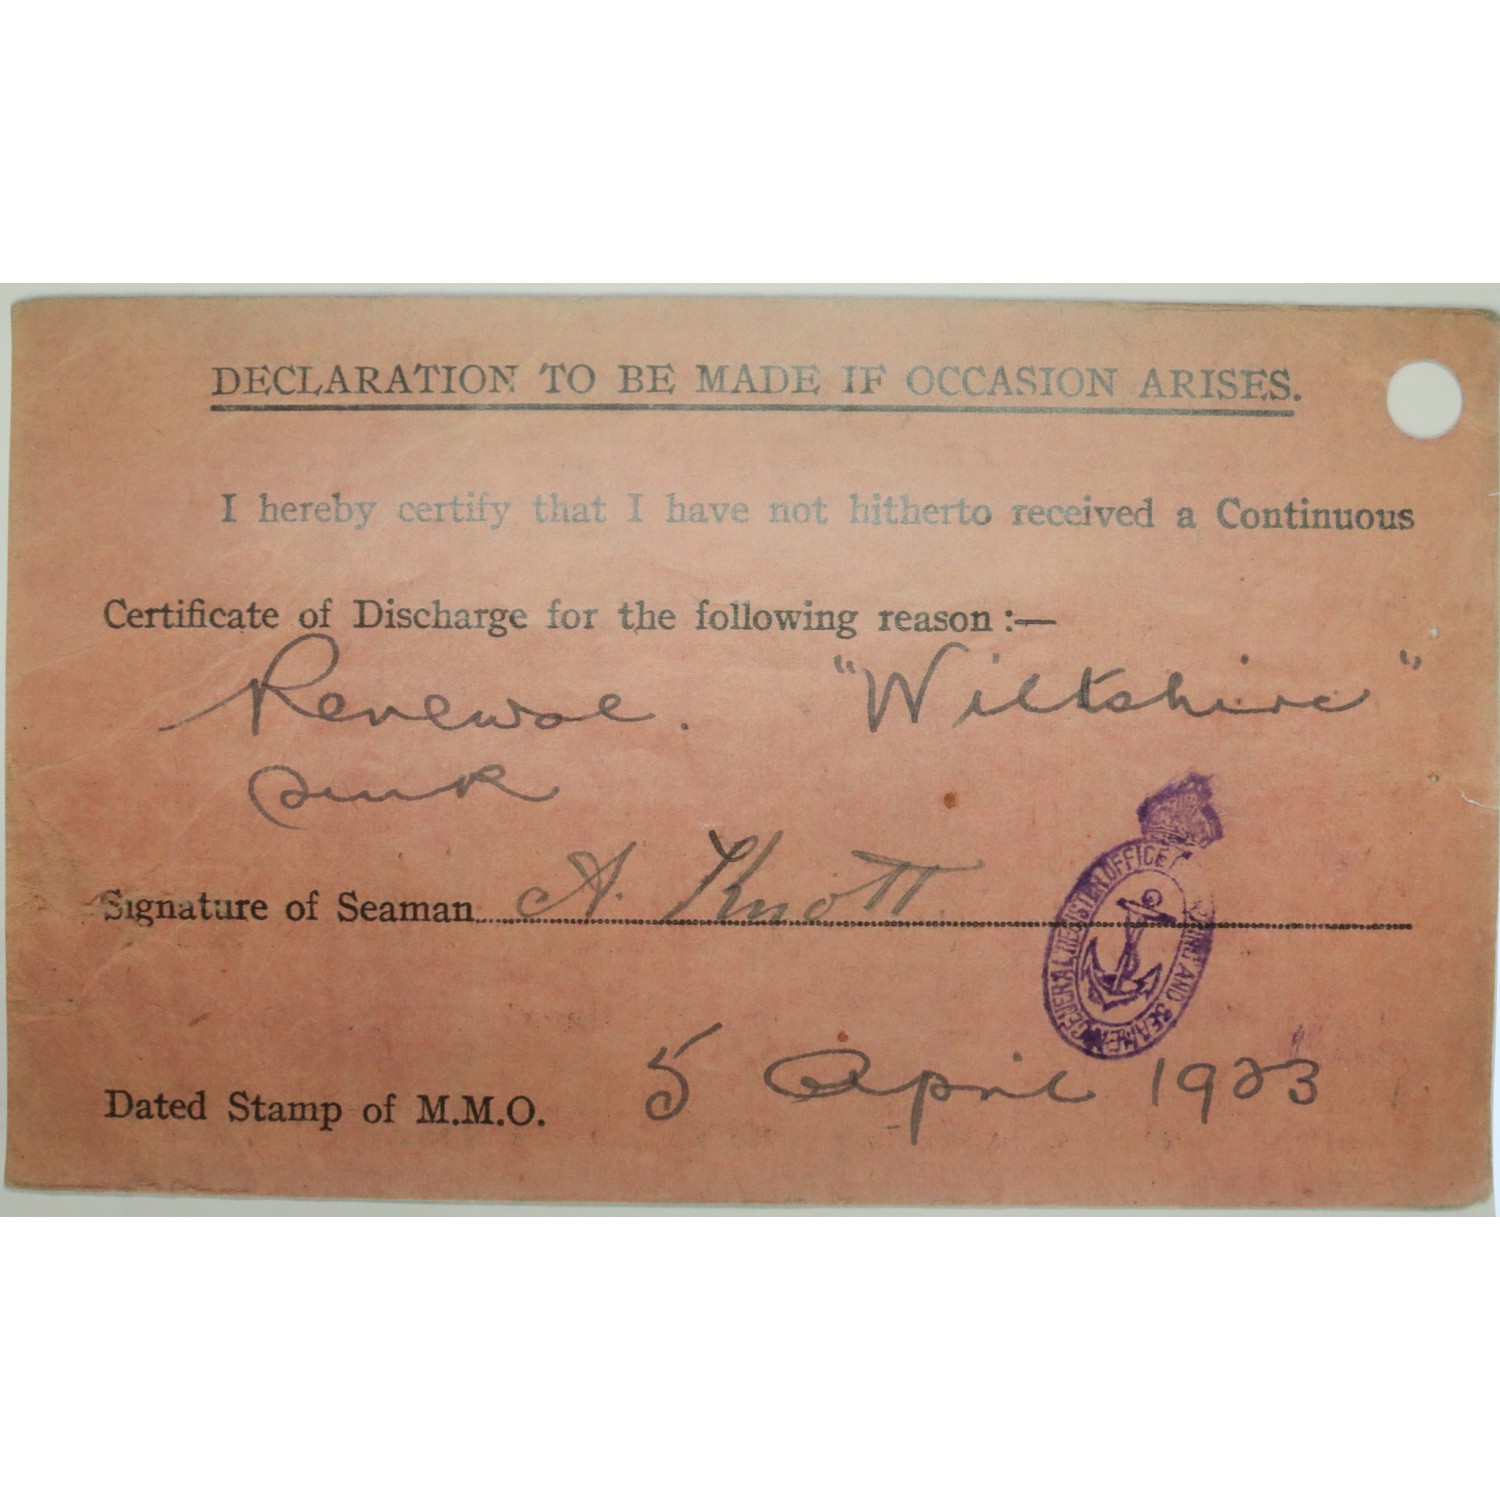 DECLARATION TO BE MADE IF OCCASION ARISES.
I hereby certify that I have not hitherto received a Continuous
Certificate of Discharge for the following reason :—
Renewal. "Wiltshire"
sunk
Signature of Seaman A. Knott
GENERAL REGISTER OFFICE AND SEAMEN
Dated Stamp of M.M.O. 5 April 1923